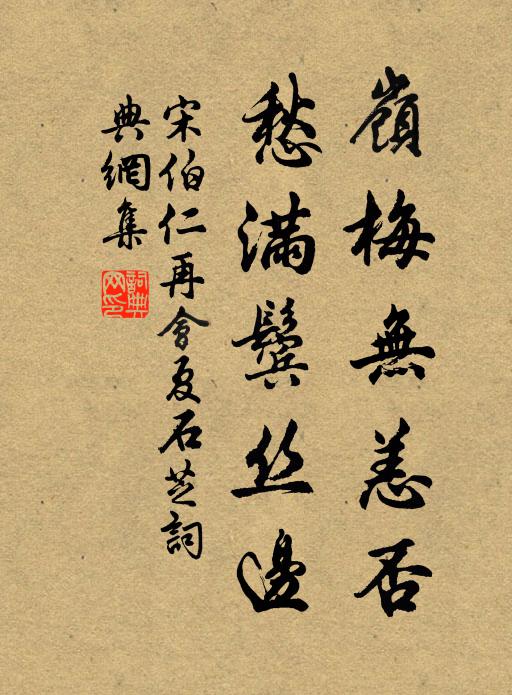 嶺梅無恙否
愁滿鬢丝邊
宋伯仁再會夏石芝詞
典網集
詞典
网印